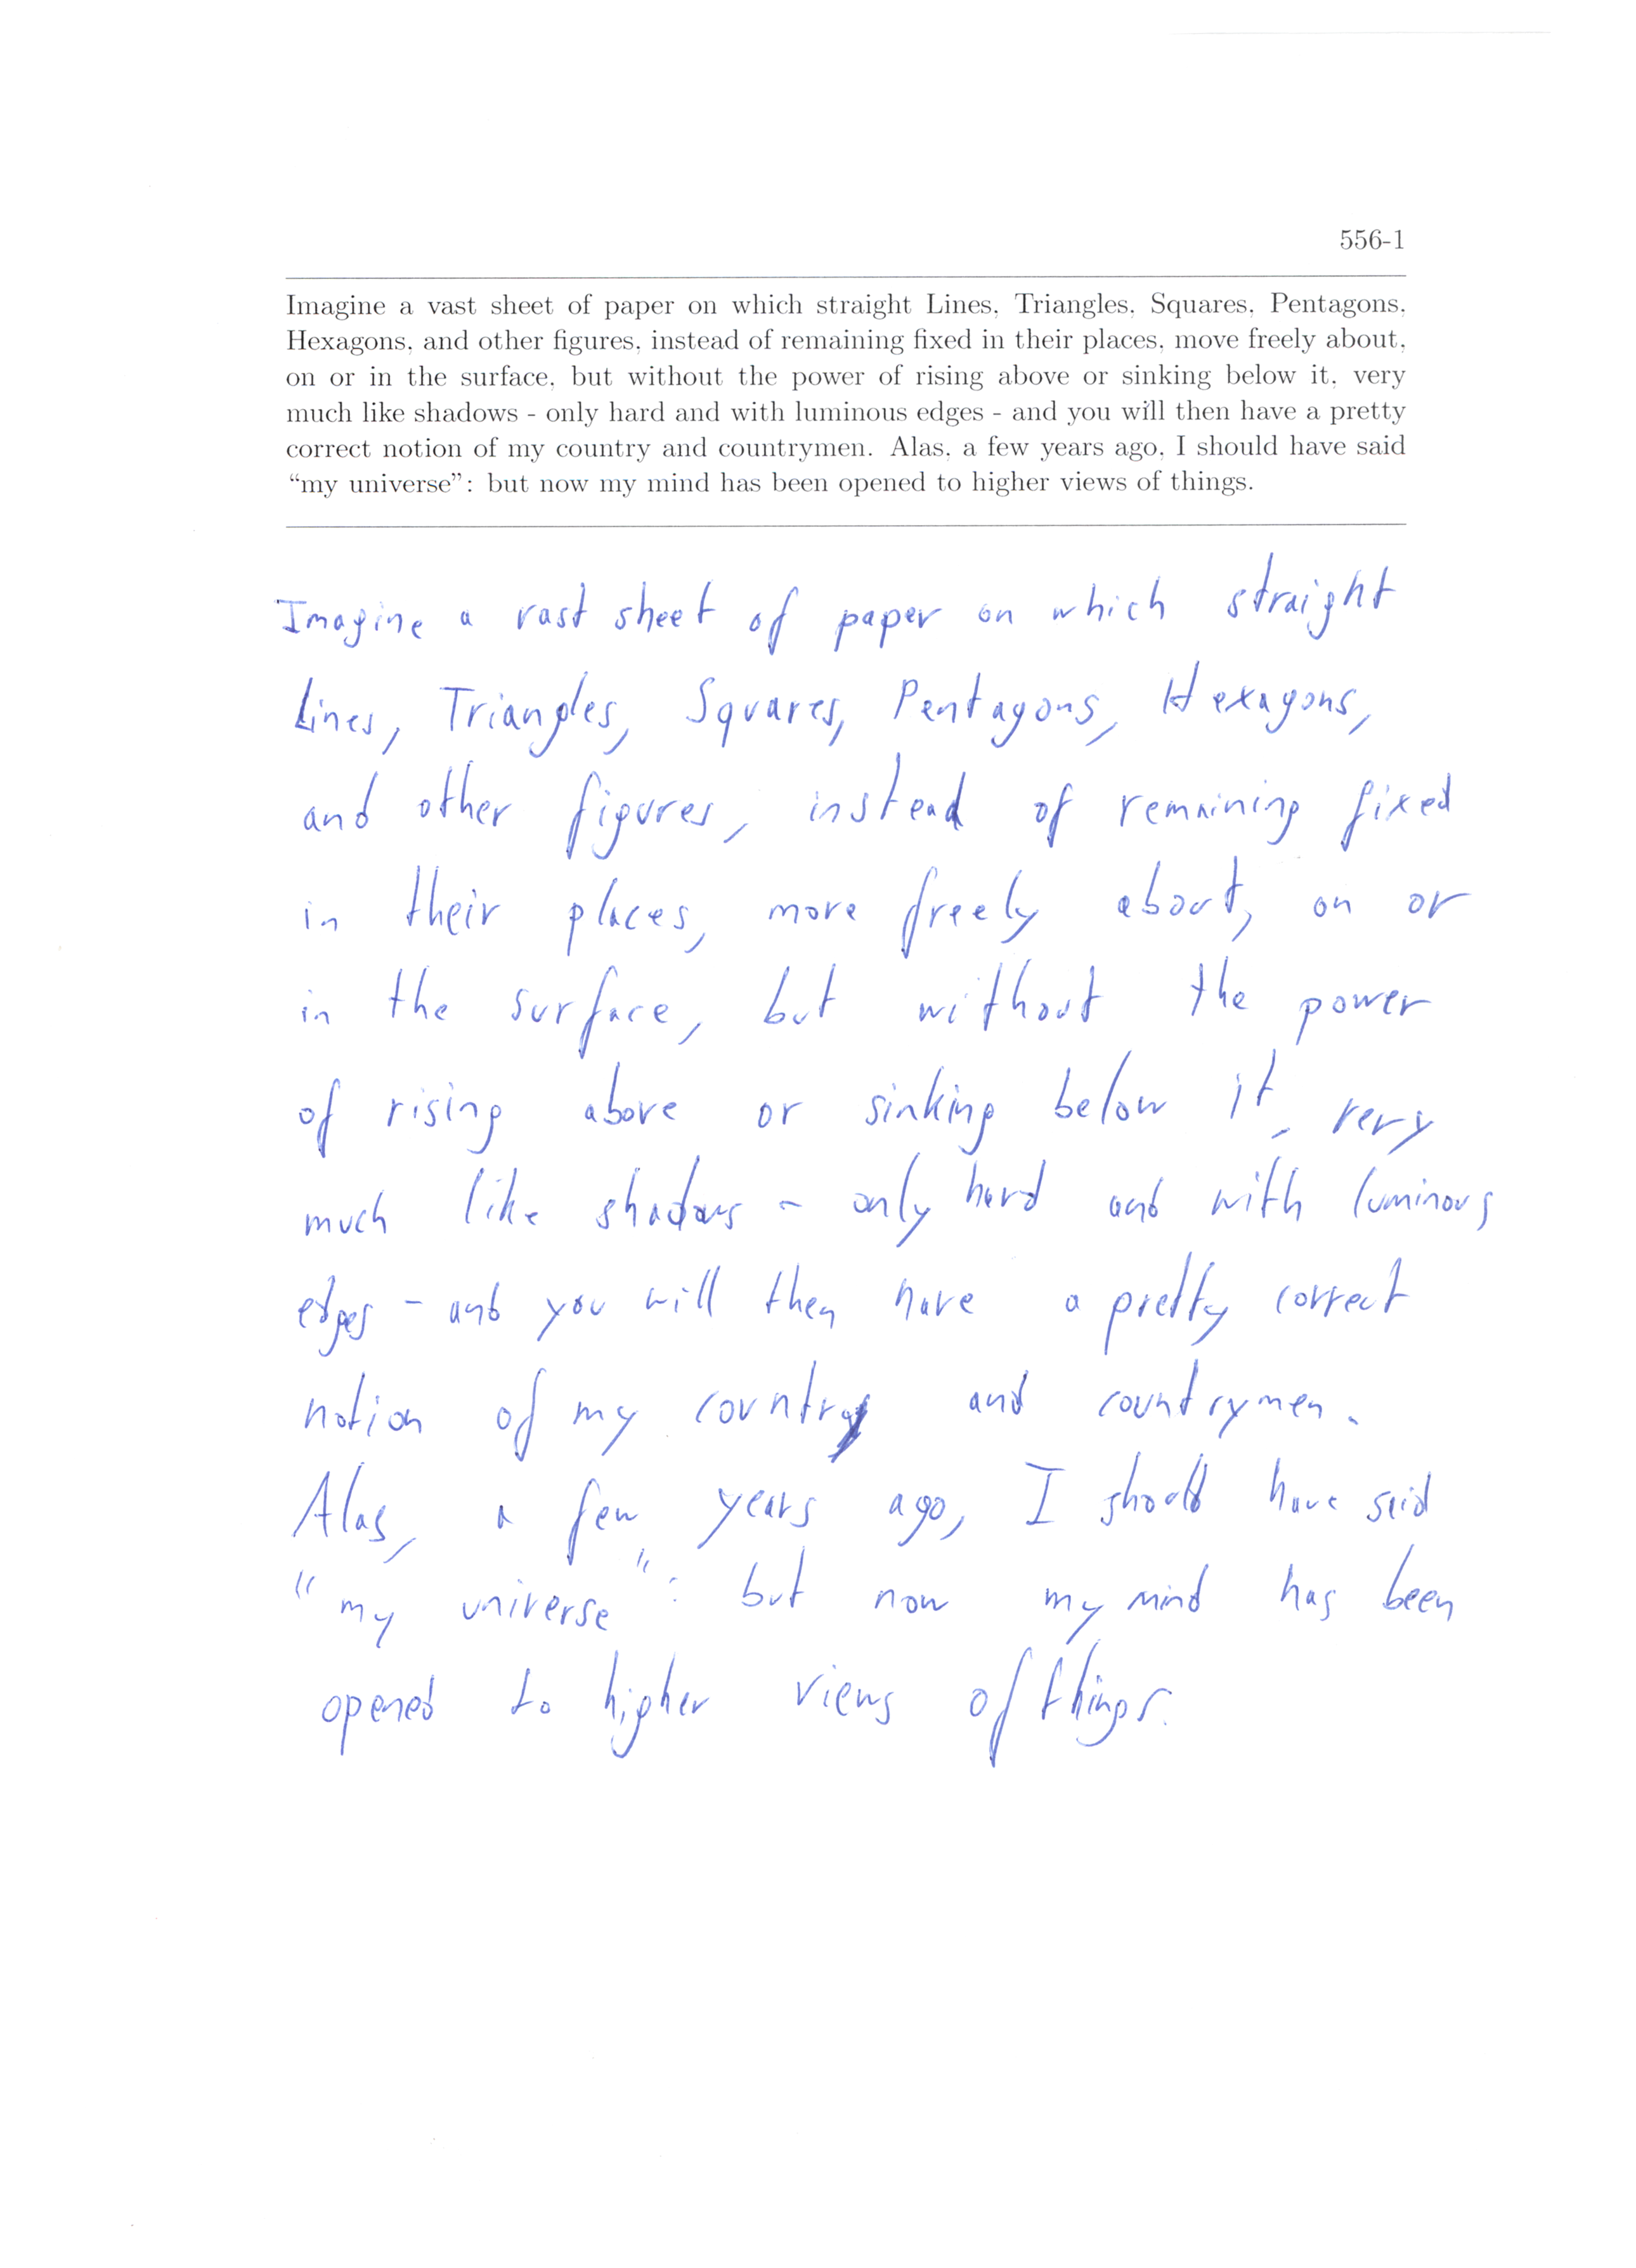 556-1
Imagine a vast sheet of paper on which straight Lines, Triangles, Squares, Pentagons,
Hexagons, and other figures, instead of remaining fixed in their places, move freely about,
on or in the surface, but without the power of rising above or sinking below it, very
much like shadows - only hard and with luminous edges - and you will then have a pretty
correct notion of my country and countrymen. Alas, a few years ago, I should have said
“my universe”: but now my mind has been opened to higher views of things.
Imagine a vast sheet of paper on which straight
Lines, Triangles, Squares, Pentagons, Hexagons,
and other figures, instead of remaining fixed
in their places, move freely about, on or
in the surface, but without the power
of rising above or sinking below it, very
much like shadows - only hard and with luminous
edges - and you will then have a pretty correct
notion of my country and countrymen.
Alas, a few years ago, I should have said
"my universe": but now my mind has been
opened to higher views of things.